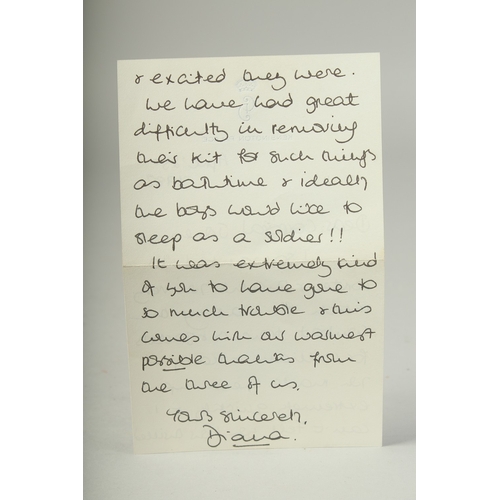 & excited they were.
We have had great
difficulty in removing
their kit for such things
as bathtime & ideally
the boys would like to
sleep as a soldier!!
It was extremely kind
of you to have gone to
so much trouble & this
comes with our warmest
possible thanks from
the three of us.
Yours sincerely,
Diana.